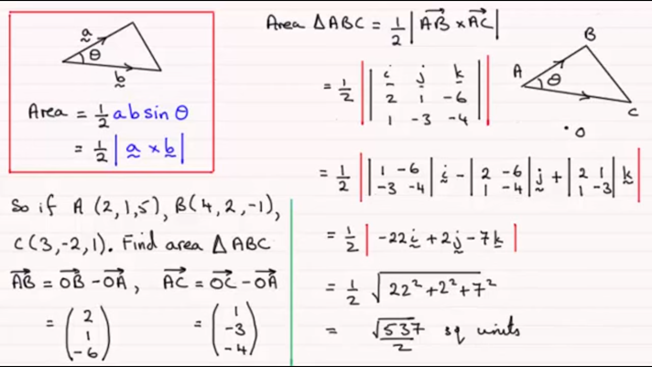 a
θ
b
Area = 1/2 ab sin θ
= 1/2 | a × b |
So if A (2,1,5), B(4,2,-1),
C(3,-2,1). Find area △ABC
AB = OB - OA , AC = OC - OA
= ( 2 1 -6 ) = ( 1 -3 -4 )
Area △ABC = 1/2 | AB × AC |
= 1/2 | | i j k |
2 1 -6
1 -3 -4 | |
= 1/2 | | 1 -6 -3 -4 | i - | 2 -6 1 -4 | j + | 2 1 1 -3 | k |
= 1/2 | -22i + 2j - 7k |
= 1/2 √22² + 2² + 7²
= √537/2 sq units
B
A
θ
C
O